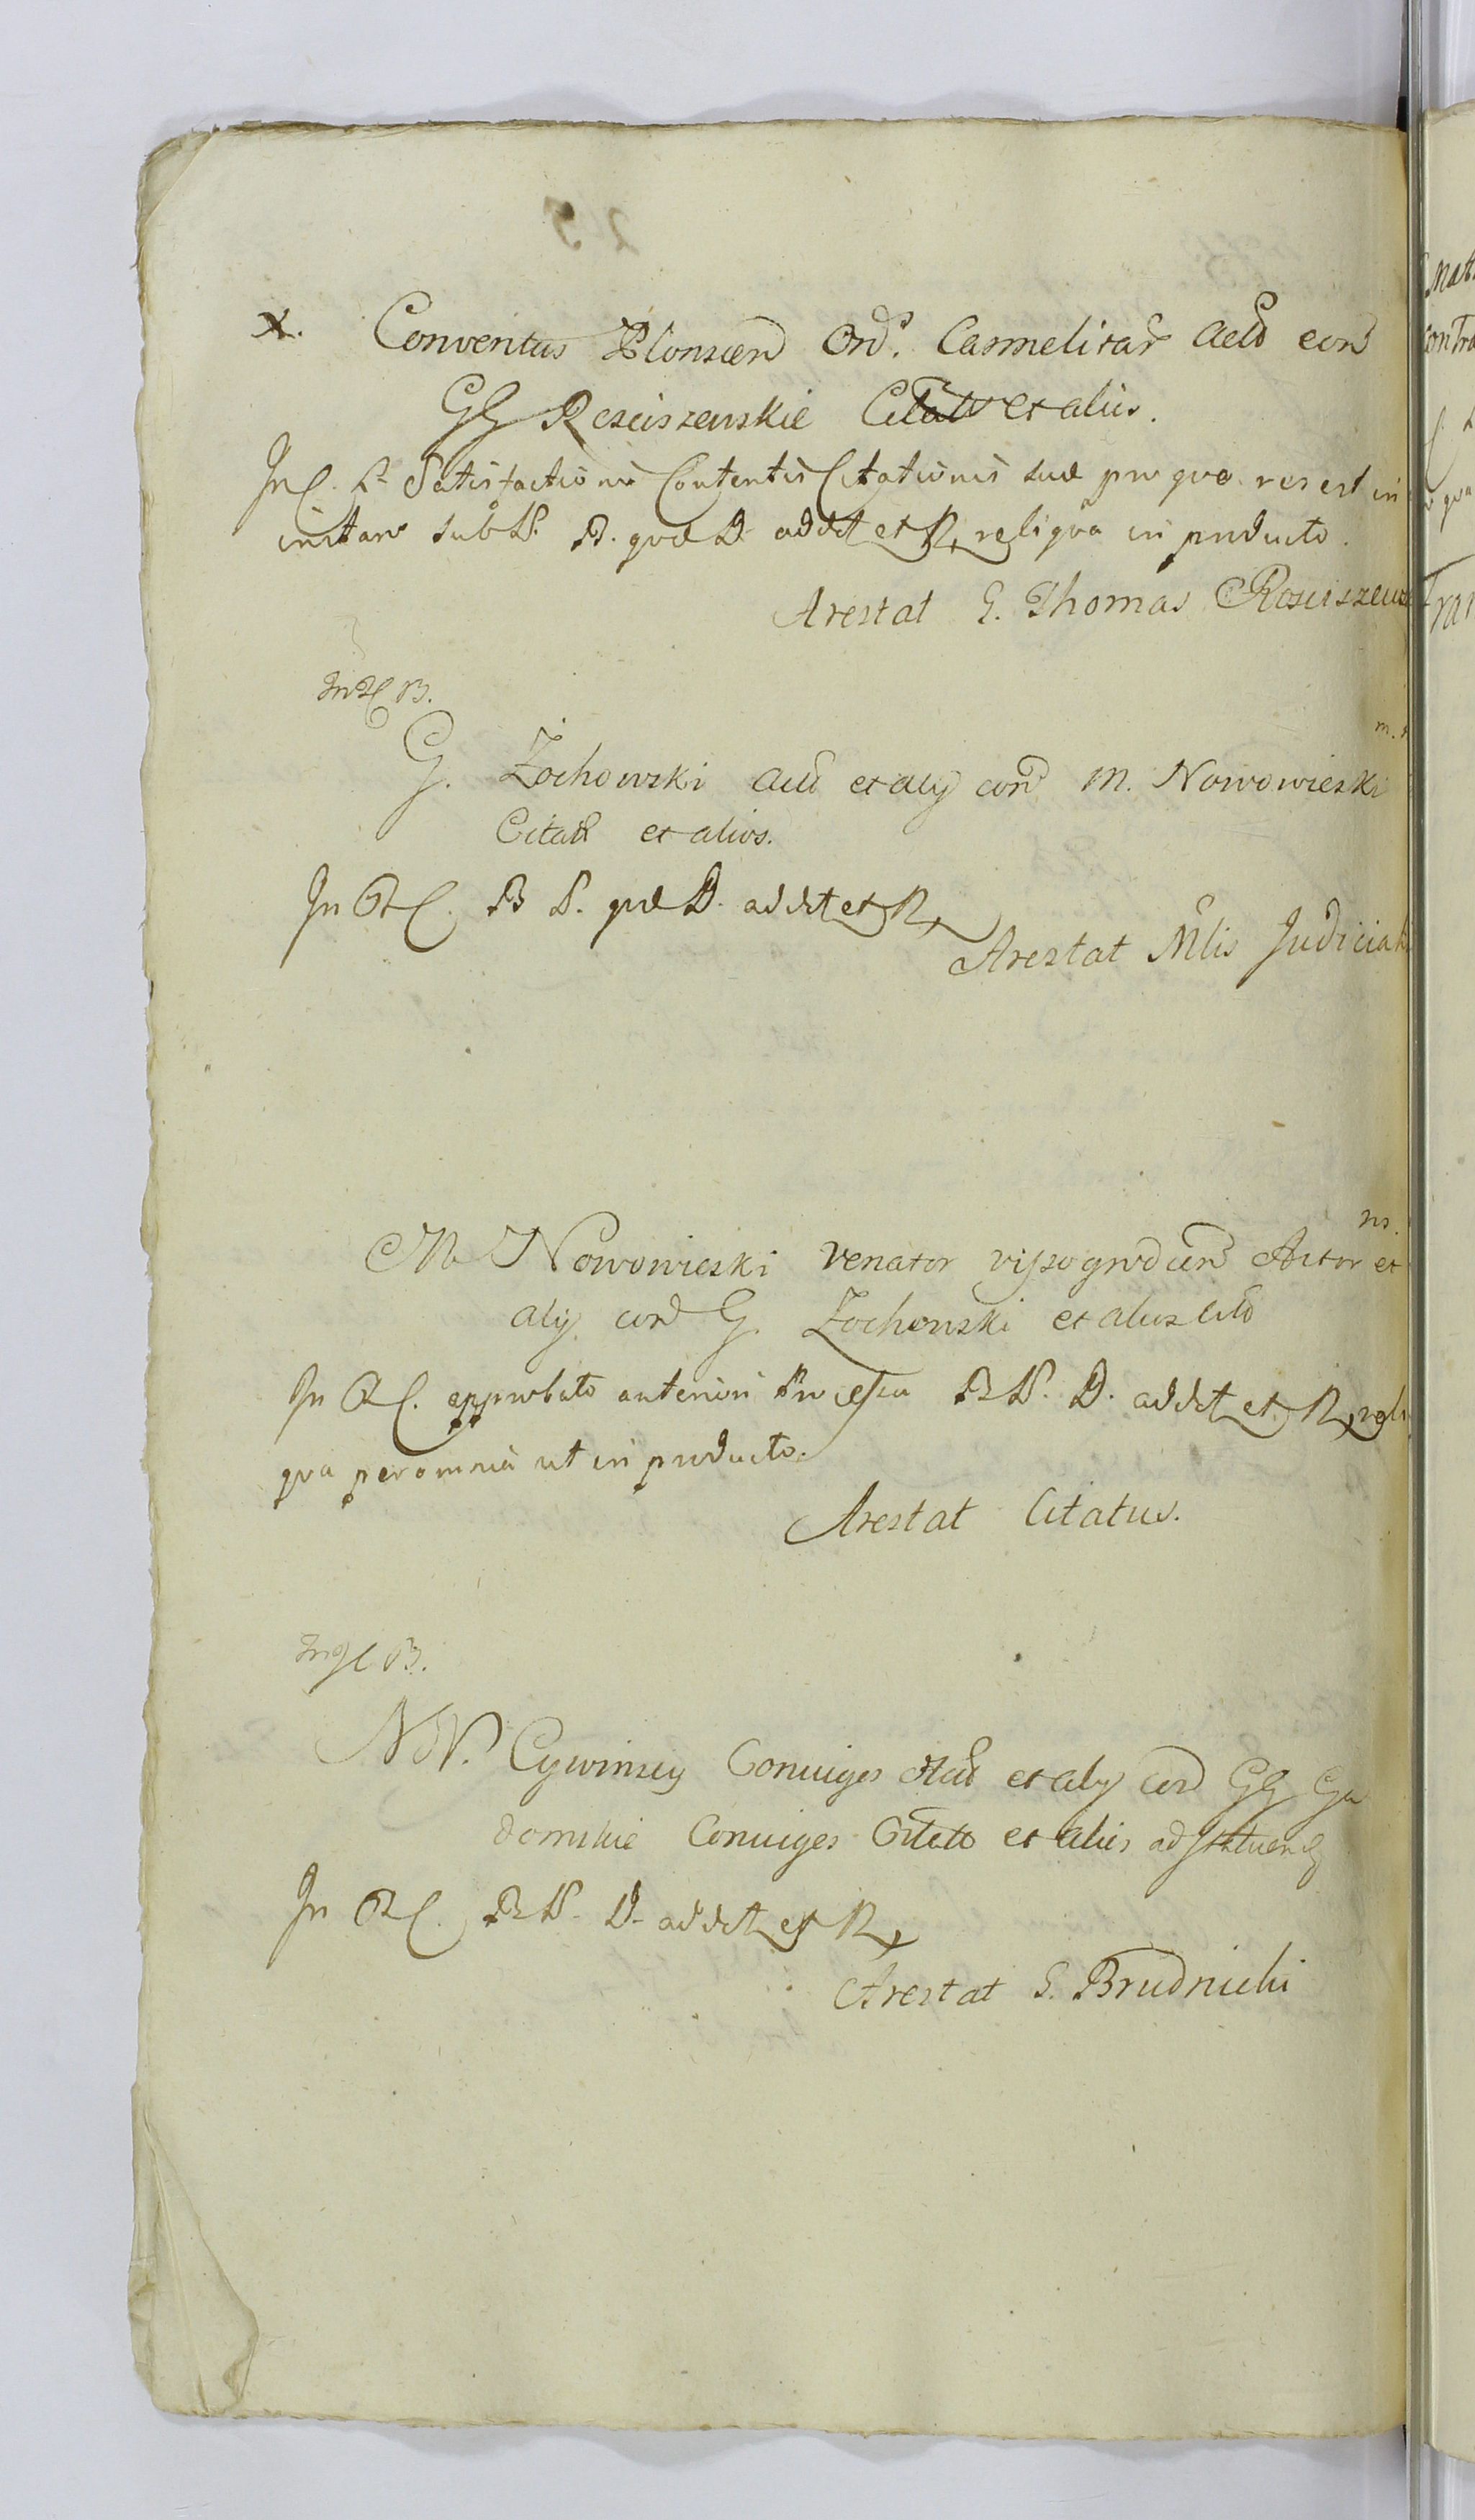 x. Conventus Plonscen Ord. Carmelitar Acto con
GG Rosciszewskie Citat et aliis.
In C. Satisfactione Contentis Citationis suae pro qua res est in
instan sub P. B. quae D. addit et R reliqua in producto.
Arestat G. Thomas Rosciszews
G. Zochowski Acto et alij con M. Nowowieski
Citat et alios.
In C. B P. quae D. addit et R
Arestat Mlis Judicial
M Nowowieski Venator Vissogrodien Actor et
alij con G. Zochowski et alios Cito
In C. approbato anteriori Processu B P. D. addit et R reli
qua per omnia ut in producto.
Arestat Citatus.
NN. Cywinscy Conuiges Acto et alij con GG Ga
domskie Conuiges Citat et aliis ad statuend
In C. B P. D. addit et R
Arestat G. Brudnicki